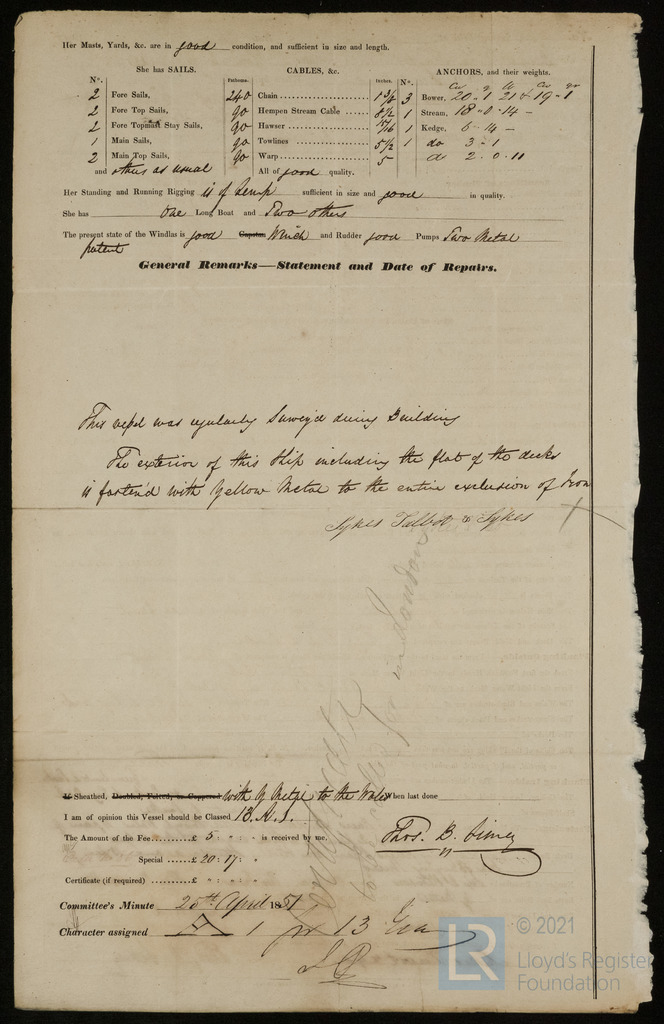 Her Masts, Yards, &c. are in good condition, and sufficient in size and length.
She has SAILS. CABLES, &c. ANCHORS, and their weights.
N°. Fathoms. Inches. N°.
2 Fore Sails, 240 Chain 1 3/8 3 Bower, 20 - 1 21 19 - 1
2 Fore Top Sails, 90 Hempen Stream Cable 8 1/2 1 Stream, 18 - 0 - 14 -
2 Fore Topmast Stay Sails, 90 Hawser 1 Kedge, 6 - 14 -
1 Main Sails, 90 Towlines 5 1/2 1 do 3 - 1
2 Main Top Sails, 90 Warp 5 do 2 - 0 - 11
and others as usual All of good quality.
Her Standing and Running Rigging is of hemp sufficient in size and good in quality.
She has One Long Boat and Two others
The present state of the Windlas is good Capstan Winch and Rudder good Pumps Two Metal
patent
General Remarks—Statement and Date of Repairs.
This vessel was regularly Survey'd during Building
The exterior of this Ship including the flat of the decks
is fasten'd with Yellow Metal to the entire exclusion of Iron
Sykes Talbot & Sykes
in London
If Sheathed, Doubled, Felted, or Coppered with Y Metal to the Wales When last done
I am of opinion this Vessel should be Classed 13 A.1.
The Amount of the Fee......£ 5 : " : " is received by me,
Special ......£ 20 : 17 : "
Thos. B.
Certificate (if required) ..........£ " : " : "
Committee's Minute 25th April 1851
Character assigned A 1 for 13 Years
LR © 2021
Lloyd's Register
Foundation